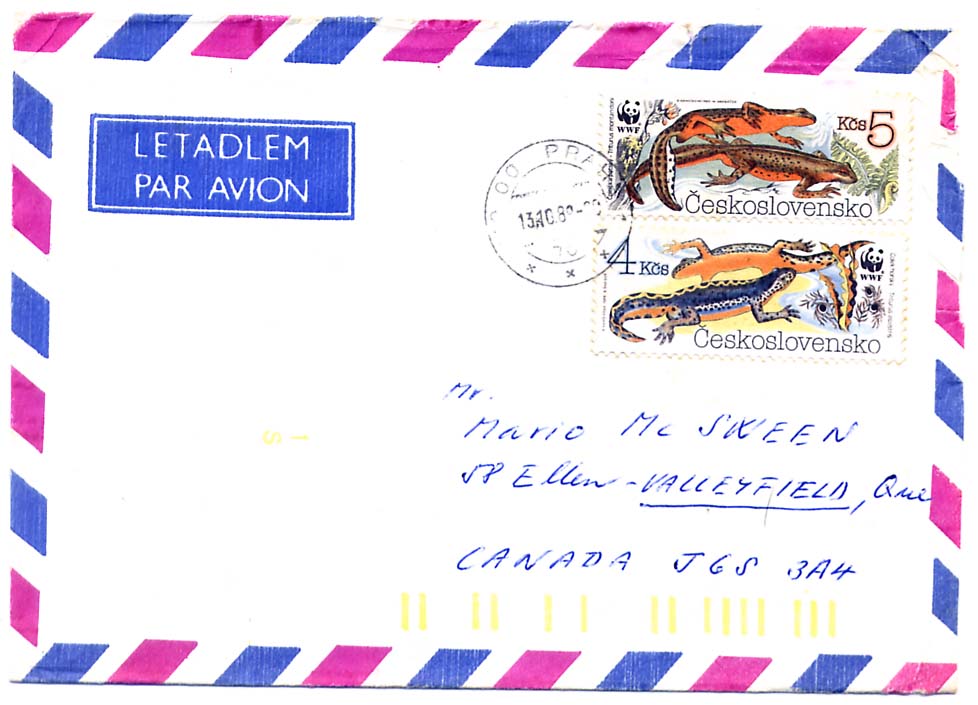 LETADLEM
PAR AVION
WWF
Kčs 5
Československo
4 Kčs
WWF
Československo
Mr.
Mario Mc SWEEN
58 Ellen - VALLEYFIELD, Que
CANADA J6S 3A4